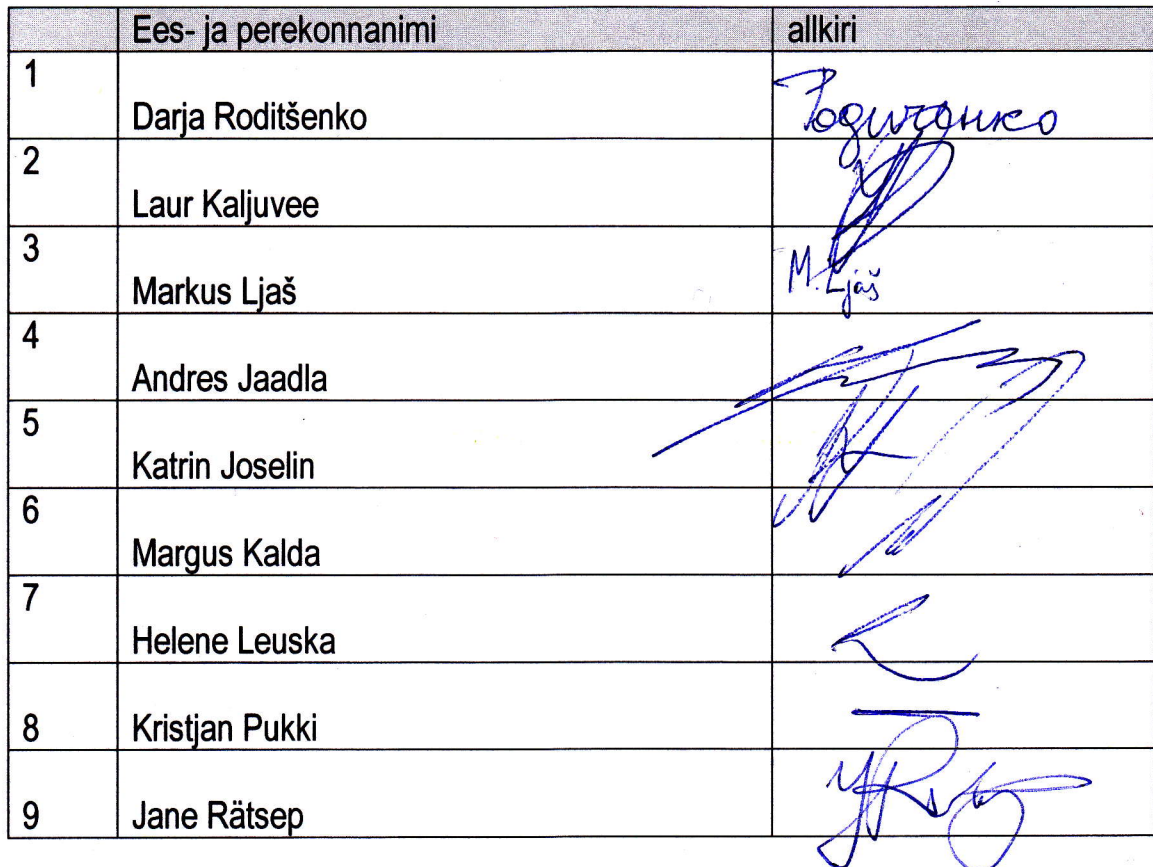 Ees- ja perekonnanimi allkiri
1
Darja Roditšenko Родиченко
2
Laur Kaljuvee
3
Markus Ljaš M. Ljaš
4
Andres Jaadla
5
Katrin Joselin
6
Margus Kalda
7
Helene Leuska
8 Kristjan Pukki
9 Jane Rätsep